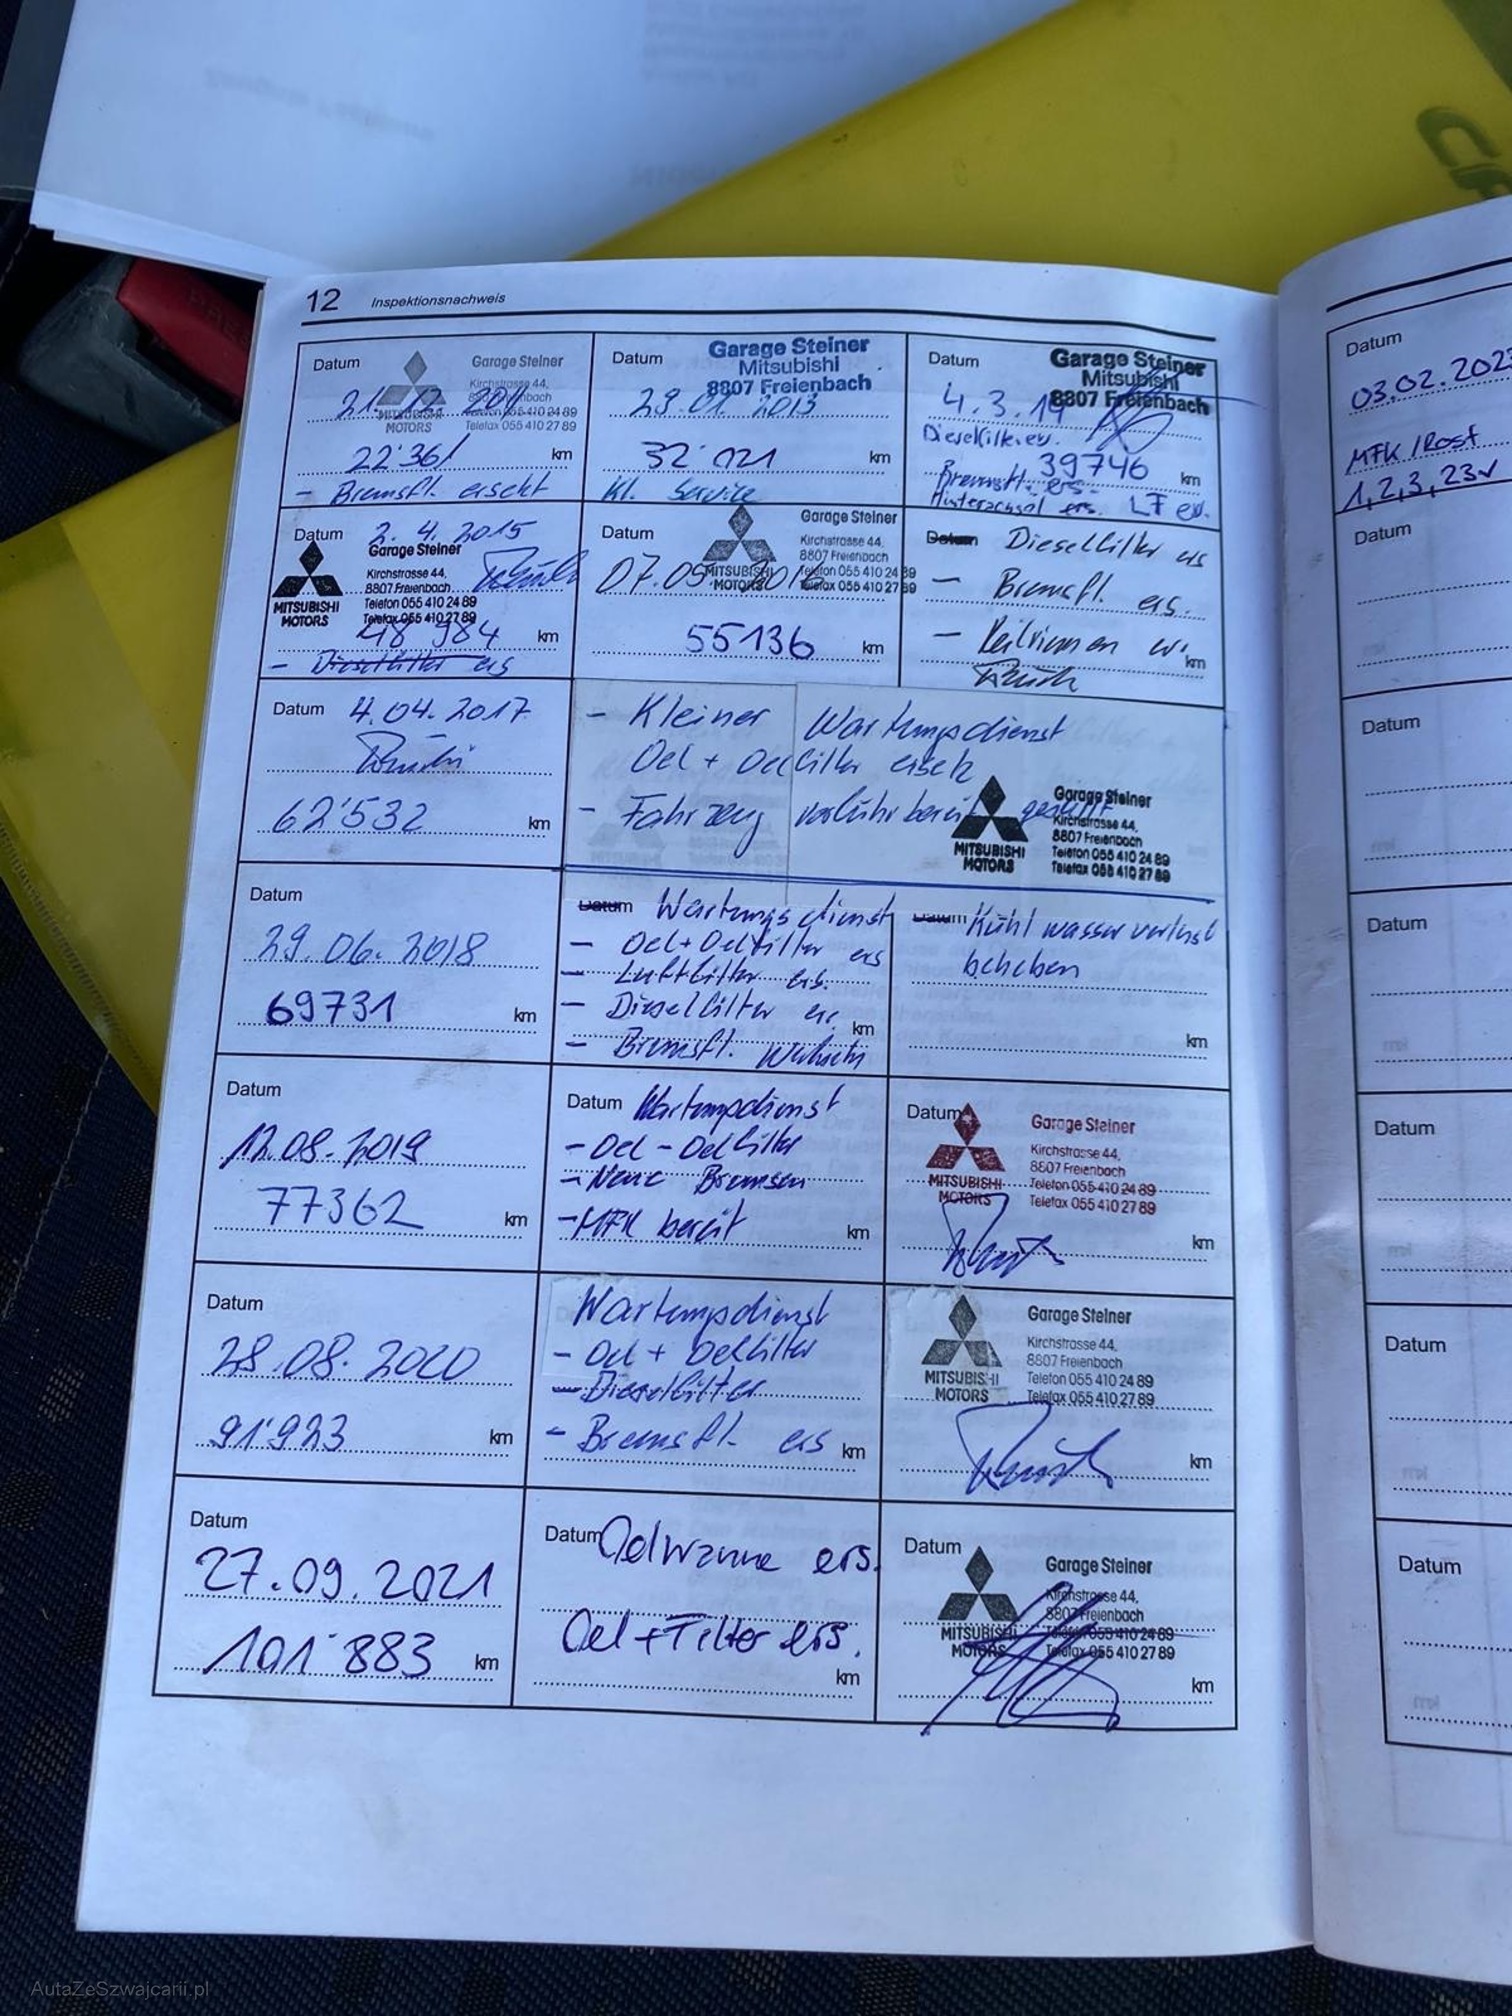 12 Inspektionsnachweis
Datum
Garage Steiner
Kirchstrasse 44,
MITSUBISHI
MOTORS
Telefon 055 410 24 89
Telefax 055 410 27 89
22'361 km
- Bremsfl. ersetzt
Datum
Garage Steiner
Mitsubishi
8807 Freienbach
29.01.2013
32'021 km
Kl. Service
Datum
Garage Steiner
Mitsubishi
8807 Freienbach
4.3.14
Dieselfilt. er.
39746 km
ers.
Hinterachsöl ers. LF er.
Datum 2.4.2015
Garage Steiner
Kirchstrasse 44,
8807 Freienbach
MITSUBISHI
MOTORS
Telefon 055 410 24 89
Telefax 055 410 27 89
48 984 km
- Dieselfilter ers
Datum
Garage Steiner
Kirchstrasse 44,
8807 Freienbach
MITSUBISHI
MOTORS
Telefon 055 410 24 89
Telefax 055 410 27 89
07.05.2016
55136 km
Datum Dieselfilter ers
- Bremsfl. ers.
- Keilriemen er.
km
Datum 4.04.2017
62'532 km
- Kleiner Wartungsdienst
Oel + Oelfilter ersetz
- Fahrzeug vorführbereit gestellt
Garage Steiner
Kirchstrasse 44,
8807 Freienbach
MITSUBISHI
MOTORS
Telefon 055 410 24 89
Telefax 055 410 27 89
Datum
29.06.2018
69731 km
Datum Wartungsdienst
- Oel + Oelfilter ers
- Luftfilter ers.
- Dieselfilter er.
km
- Bremsfl.
Datum Kühlwasserverlust
beheben
km
Datum
12.08.2019
77362 km
Datum Wartungsdienst
- Oel - Oelfilter
- Neue Bremsen
- MFK bereit km
Datum
Garage Steiner
Kirchstrasse 44,
8807 Freienbach
MITSUBISHI
MOTORS
Telefon 055 410 24 89
Telefax 055 410 27 89
km
Datum
28.08.2020
91'923 km
Wartungsdienst
- Oel + Oelfilter
- Dieselfilter
- Bremsfl. ers km
Garage Steiner
Kirchstrasse 44,
8807 Freienbach
MITSUBISHI
MOTORS
Telefon 055 410 24 89
Telefax 055 410 27 89
km
Datum
27.09.2021
101'883 km
Datum Oelwanne ers.
Oel + Filter ers.
km
Datum
Garage Steiner
Kirchstrasse 44,
8807 Freienbach
MITSUBISHI
MOTORS
Telefon 055 410 24 89
Telefax 055 410 27 89
km
Datum
03.02.202
MFK / Rost
1, 2, 3, 23√
Datum
Datum
Datum
Datum
Datum
Datum
AutaZeSzwajcarii.pl